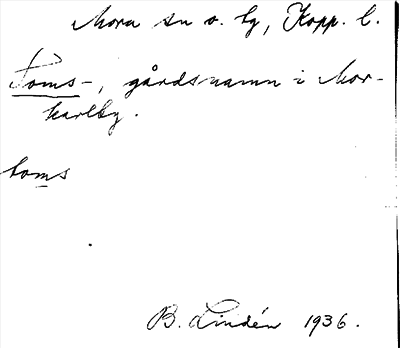 Mora sn o. tg, Kopp. l.
Toms-, gårdsnamn i Mor-
karlby.
toms
B. Lindén 1936.